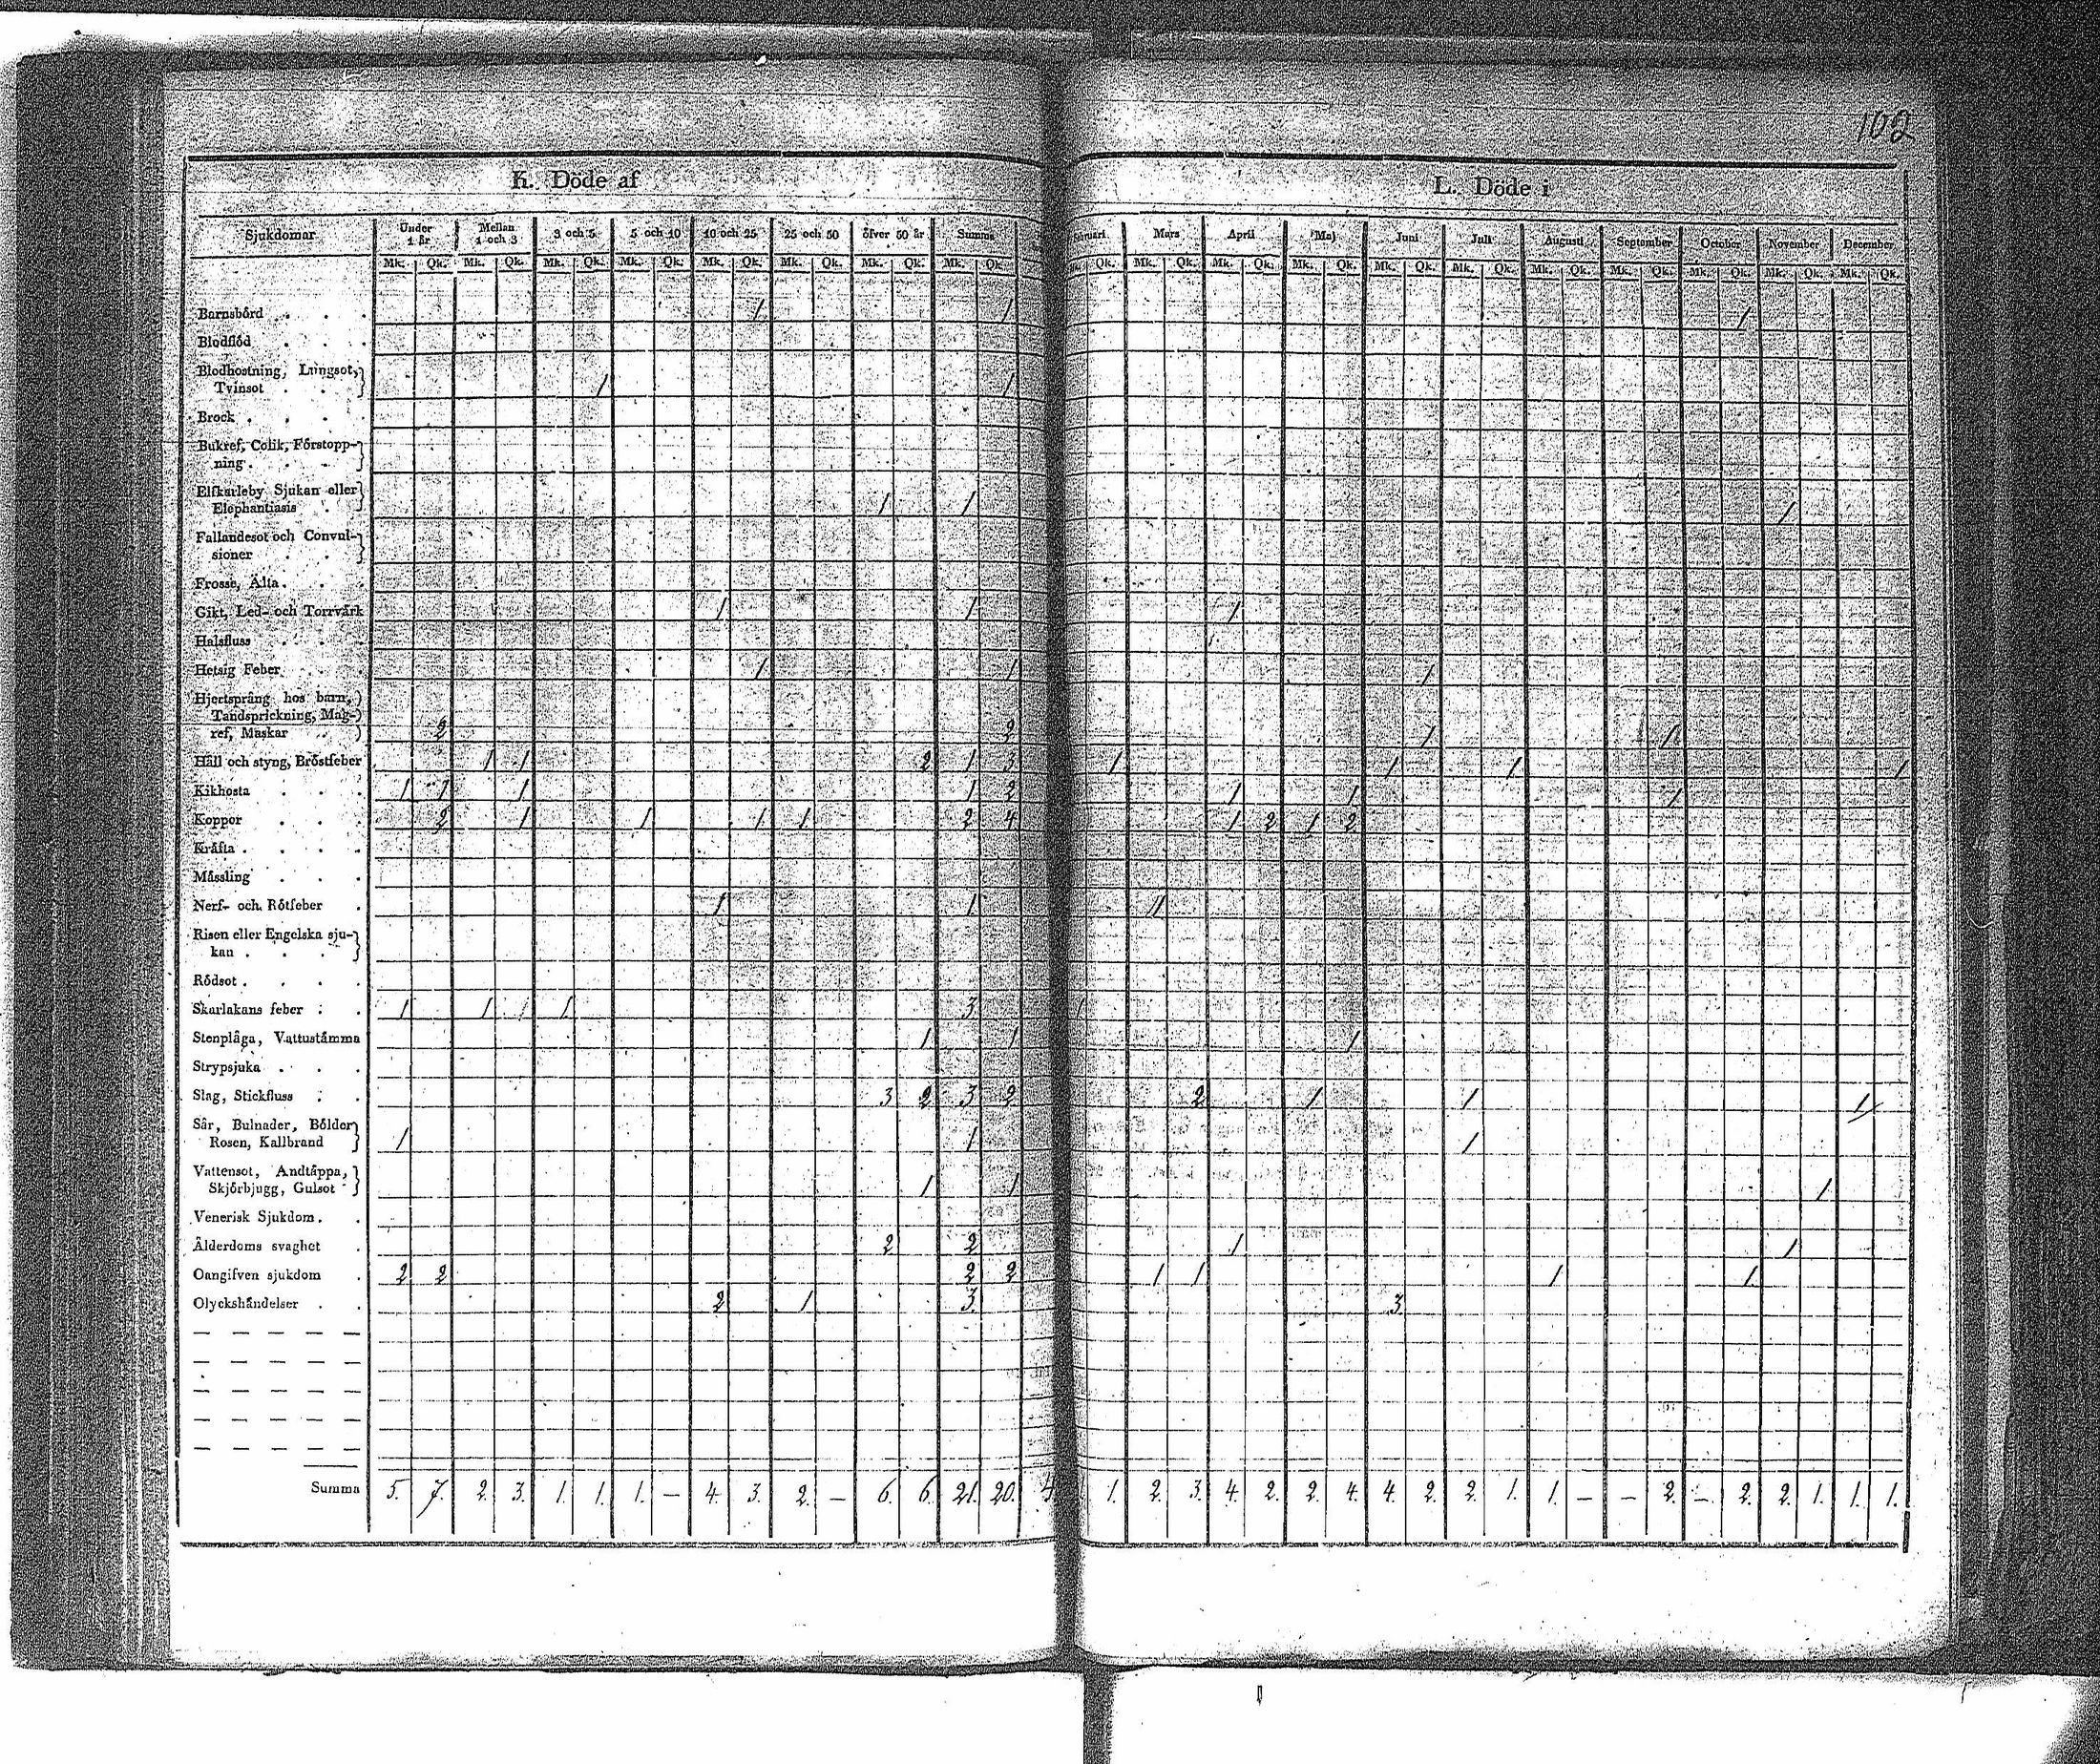 102
K. Döde af
L. Döde i
Sjukdomar Under 1 år Mellan 1 och 3 3 och 5 5 och 10 10 och 25 25 och 50 öfver 50 år Summa
Mars April Maj Juni Juli Augusti September October November December
Mk. Qk. Mk. Qk. Mk. Qk. Mk. Qk. Mk. Qk. Mk. Qk. Mk. Qk. Mk. Qk.
Qk. Mk. Qk. Mk. Qk. Mk. Qk. Mk. Qk. Mk. Qk. Mk. Qk. Mk. Qk. Mk. Qk. Mk. Qk. Mk. Qk.
Barnsbörd 1 1 1
Blodflöd
Blodhostning, Lungsot,
Tvinsot 1 1
Brock
Bukref, Colik, Förstopp-
ning
Elfkarleby Sjukan eller
Elephantiasis 1 1 1
Fallandesot och Convul-
sioner
Frossa, Älta
Gikt, Led- och Torrvärk 1 1 1
Halsfluss
Hetsig Feber 1 1 1
Hjertsprång hos barn,
Tandsprickning, Mag-
ref, Maskar 2 2 1 1
Håll och styng, Bröstfeber 1 1 2 1 3 1 1 1 1
Kikhosta 1 1 1 1 2 1 1 1
Koppor 2 1 1 1 1 2 4 1 2 1 2
Kräfta
Mässling
Nerf- och Rötfeber 1 1 1
Risen eller Engelska sju-
kan
Rödsot
Skarlakans feber 1 1 1 1 3 1
Stenplåga, Vattustämma 1 1 1
Strypsjuka
Slag, Stickfluss 3 2 3 2 2 1 1 1
Sår, Bulnader, Bölder
Rosen, Kallbrand 1 1 1
Vattensot, Andtäppa,
Skjörbjugg, Gulsot 1 1 1
Venerisk Sjukdom
Ålderdoms svaghet 2 2 1 1
Oangifven sjukdom 2 2 2 2 1 1 1 1
Olyckshändelser 2 1 3 3
Summa 5. 7. 2. 3. 1. 1. 1. — 4. 3. 2. — 6. 6. 21. 20. 1. 2. 3. 4. 2. 2. 4. 4. 2. 2. 1. 1. — — 2. — 2. 2. 1. 1. 1.